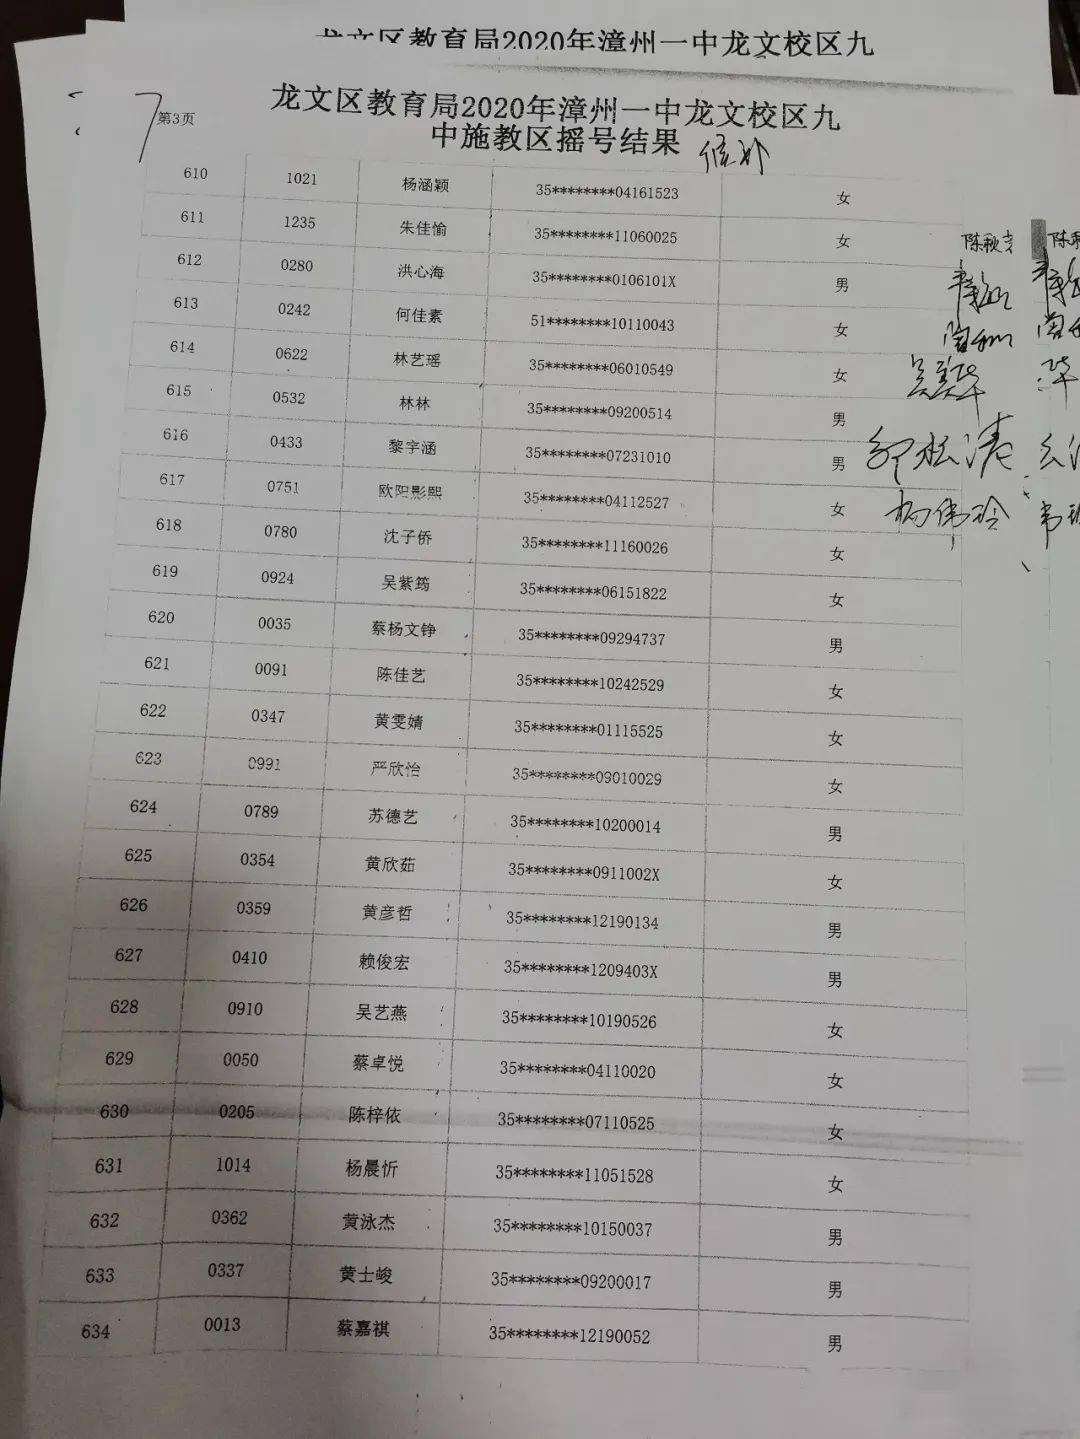 龙文区教育局2020年漳州一中龙文校区九
第3页
龙文区教育局2020年漳州一中龙文校区九
中施教区摇号结果 候补
610 1021 杨涵颖 35********04161523 女
611 1235 朱佳愉 35********11060025 女
612 0280 洪心海 35********0106101X 男
613 0242 何佳素 51********10110043 女
614 0622 林艺瑶 35********06010549 女
615 0532 林林 35********09200514 男
616 0433 黎宇涵 35********07231010 男
617 0751 欧阳影熙 35********04112527 女
618 0780 沈子侨 35********11160026 女
619 0924 吴紫筠 35********06151822 女
620 0035 蔡杨文铮 35********09294737 男
621 0091 陈佳艺 35********10242529 女
622 0347 黄雯婧 35********01115525 女
623 0991 严欣怡 35********09010029 女
624 0789 苏德艺 35********10200014 男
625 0354 黄欣茹 35********0911002X 女
626 0359 黄彦哲 35********12190134 男
627 0410 赖俊宏 35********1209403X 男
628 0910 吴艺燕 35********10190526 女
629 0050 蔡卓悦 35********04110020 女
630 0205 陈梓依 35********07110525 女
631 1014 杨晨忻 35********11051528 女
632 0362 黄泳杰 35********10150037 男
633 0337 黄士峻 35********09200017 男
634 0013 蔡嘉祺 35********12190052 男
吴美华
杨伟玲